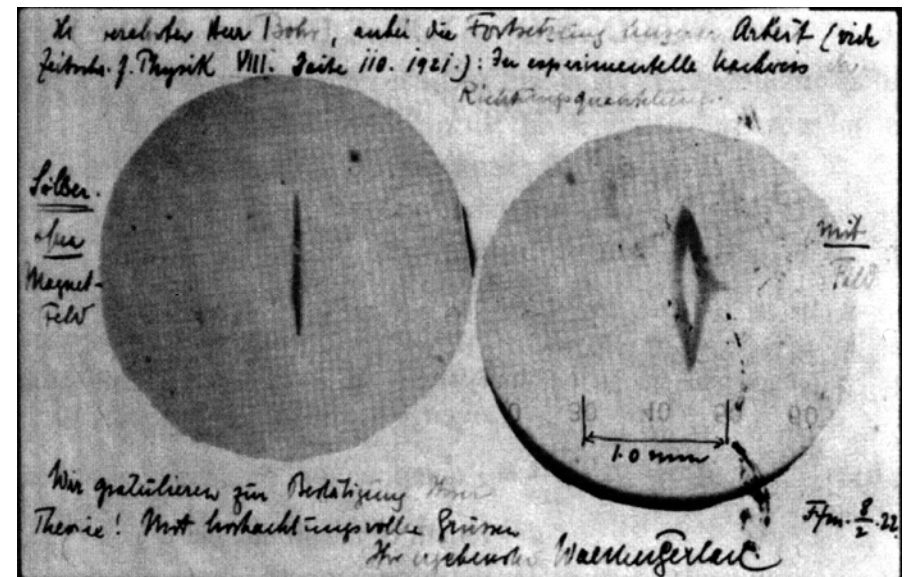 verehrter Herr Bohr, anbei die Fortsetzung unserer Arbeit (vide
Zeitschr. f. Physik VIII. Seite 110. 1921.): Der experimentelle Nachweis
Richtungsquantelung.
Silber
ohne
Magnet-
Feld
mit
Feld
30 40 50 60
1.0 mm
Wir gratulieren zur Bestätigung Ihrer
Theorie! Mit hochachtungsvollen Grüssen
Ihr ergebenster Walther Gerlach
Ffm. 8/2.22.